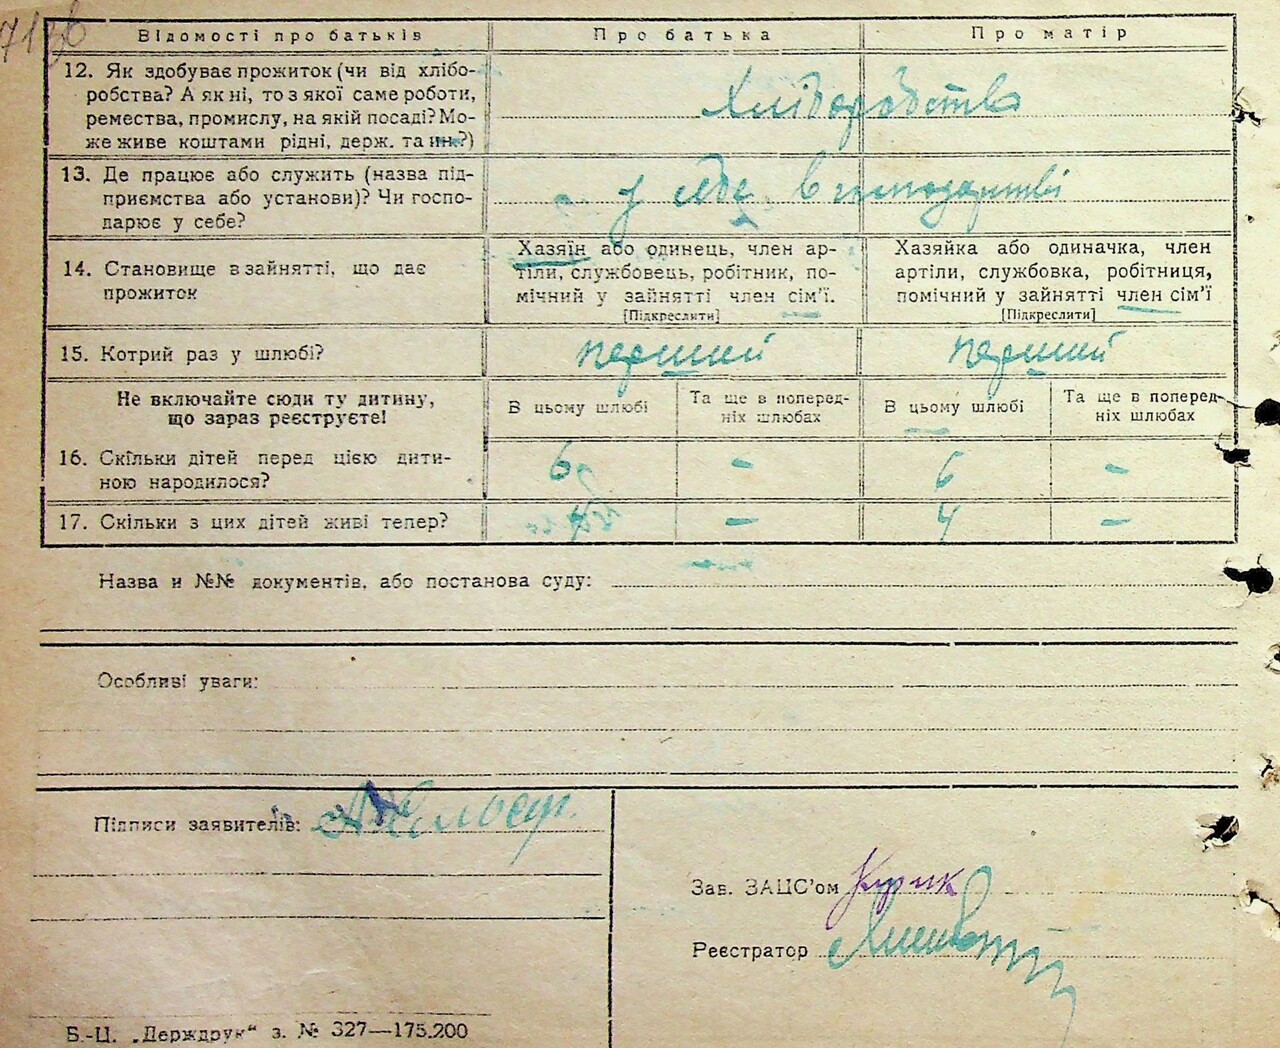 713в
Відомості про батьків Про батька Про матір
12. Як здобуває прожиток (чи від хлібо-
робства? А як ні, то з якої саме роботи,
ремества, промислу, на якій посаді? Мо-
же живе коштами рідні, держ. та ин.?)
Хліборобство
13. Де працює або служить (назва під-
приємства або установи)? Чи госпо-
дарює у себе?
у себе в господарстві
14. Становище в зайнятті, що дає
прожиток
Хазяїн або одинець, член ар-
тіли, службовець, робітник, по-
мічний у зайнятті член сім’ї.
[Підкреслити]
Хазяйка або одиначка, член
артіли, службовка, робітниця,
помічний у зайнятті член сім’ї
[Підкреслити]
15. Котрий раз у шлюбі? перший перший
Не включайте сюди ту дитину,
що зараз реєструєте!
В цьому шлюбі
Та ще в поперед-
ніх шлюбах
В цьому шлюбі
Та ще в поперед-
ніх шлюбах
16. Скільки дітей перед цією дити-
ною народилося?
6 - 6 -
17. Скільки з цих дітей живі тепер? 4 - 4 -
Назва и №№ документів, або постанова суду:
Особливі уваги:
Підписи заявителів:
Зав. ЗАЦС’ом
Реєстратор
Б.-Ц. „Держдрук“ з. № 327—175.200